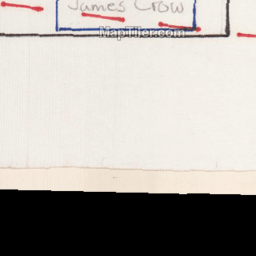 James Crow
MapTiler.com